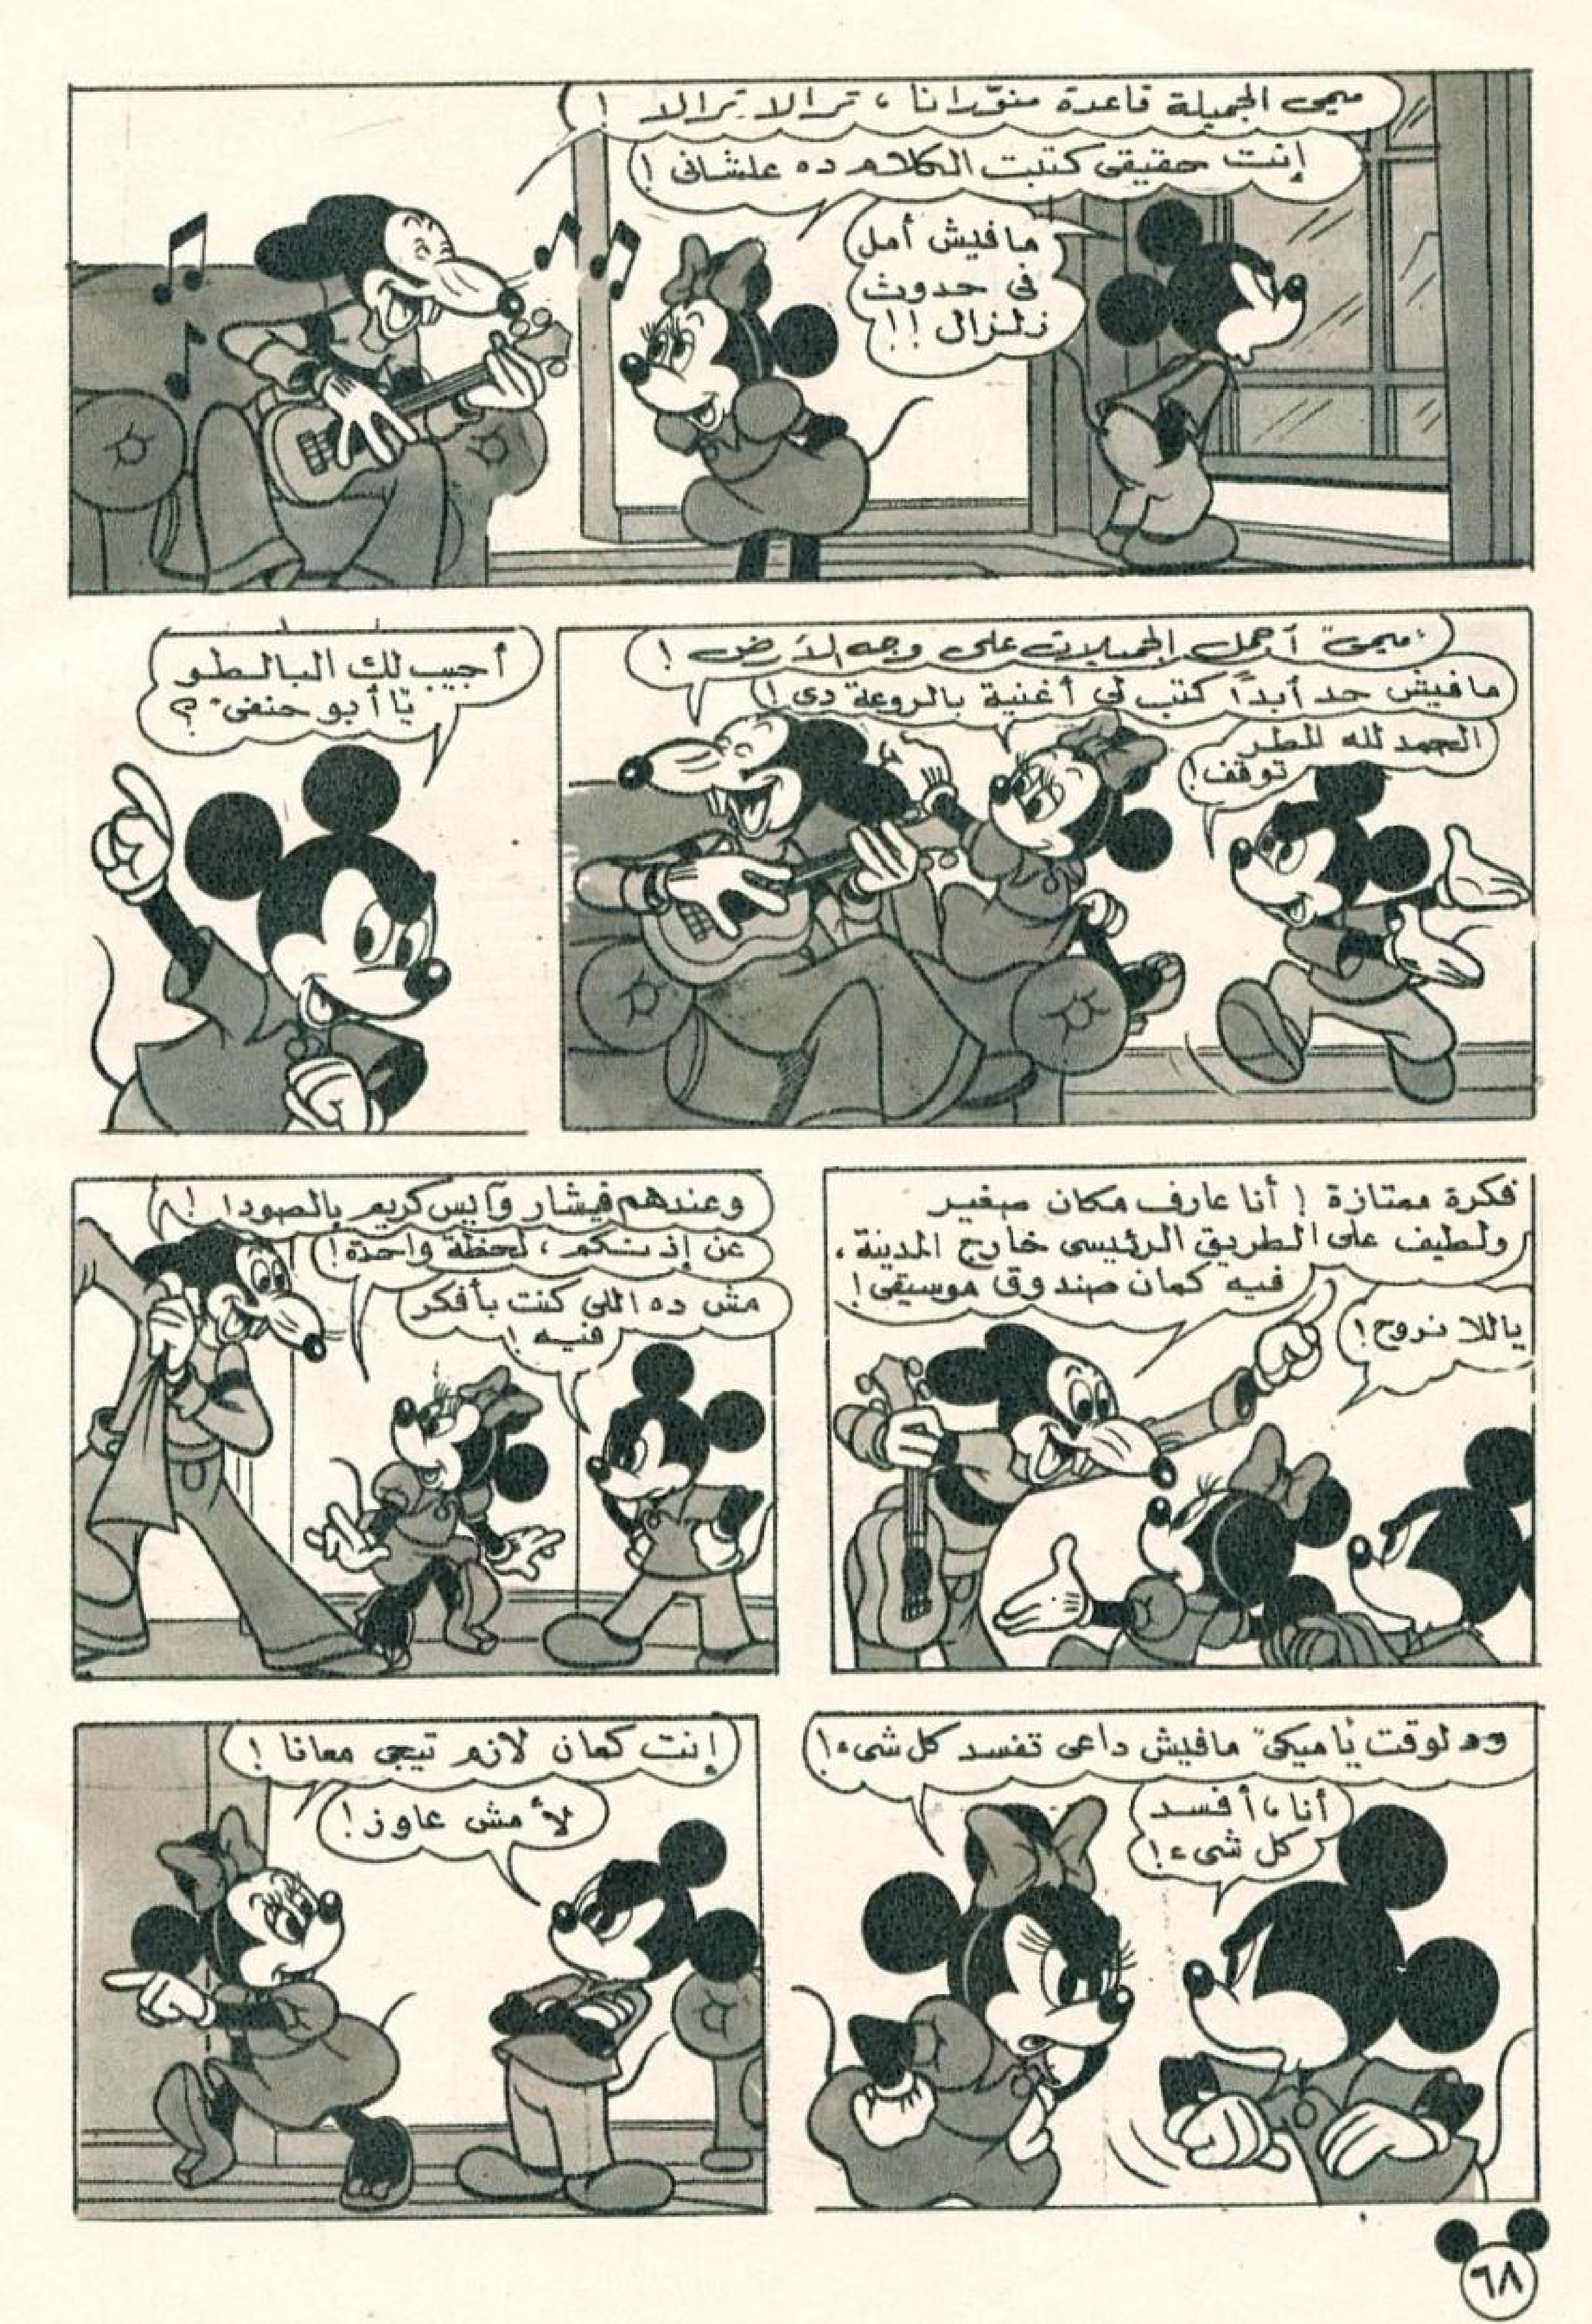 ميمى الجميلة قاعدة منورانا ، ترالا ترالا !
إنت حقيقى كتبت الكلام ده علشانى !
مافيش أمل
فى حدوث
زلزال !!
"ميمى" أجمل الجميلات على وجه الأرض !
مافيش حد أبداً كتب لى أغنية بالروعة دى !
الحمد لله المطر
توقف !
أجيب لك البالطو
يا "أبو حنفى" ؟
فكرة ممتازة ! أنا عارف مكان صغير
ولطيف على الطريق الرئيسى خارج المدينة ،
فيه كمان صندوق موسيقى !
ياللا نروح !
وعندهم فيشار وآيس كريم بالصودا !
عن إذنكم ، لحظة واحدة !
مش ده اللى كنت بأفكر
فيه !
ودلوقت يا "ميكى" مافيش داعى تفسد كل شىء !
أنا ، أفسد
كل شىء !
إنت كمان لازم تيجى معانا !
لأ مش عاوز !
٦٨